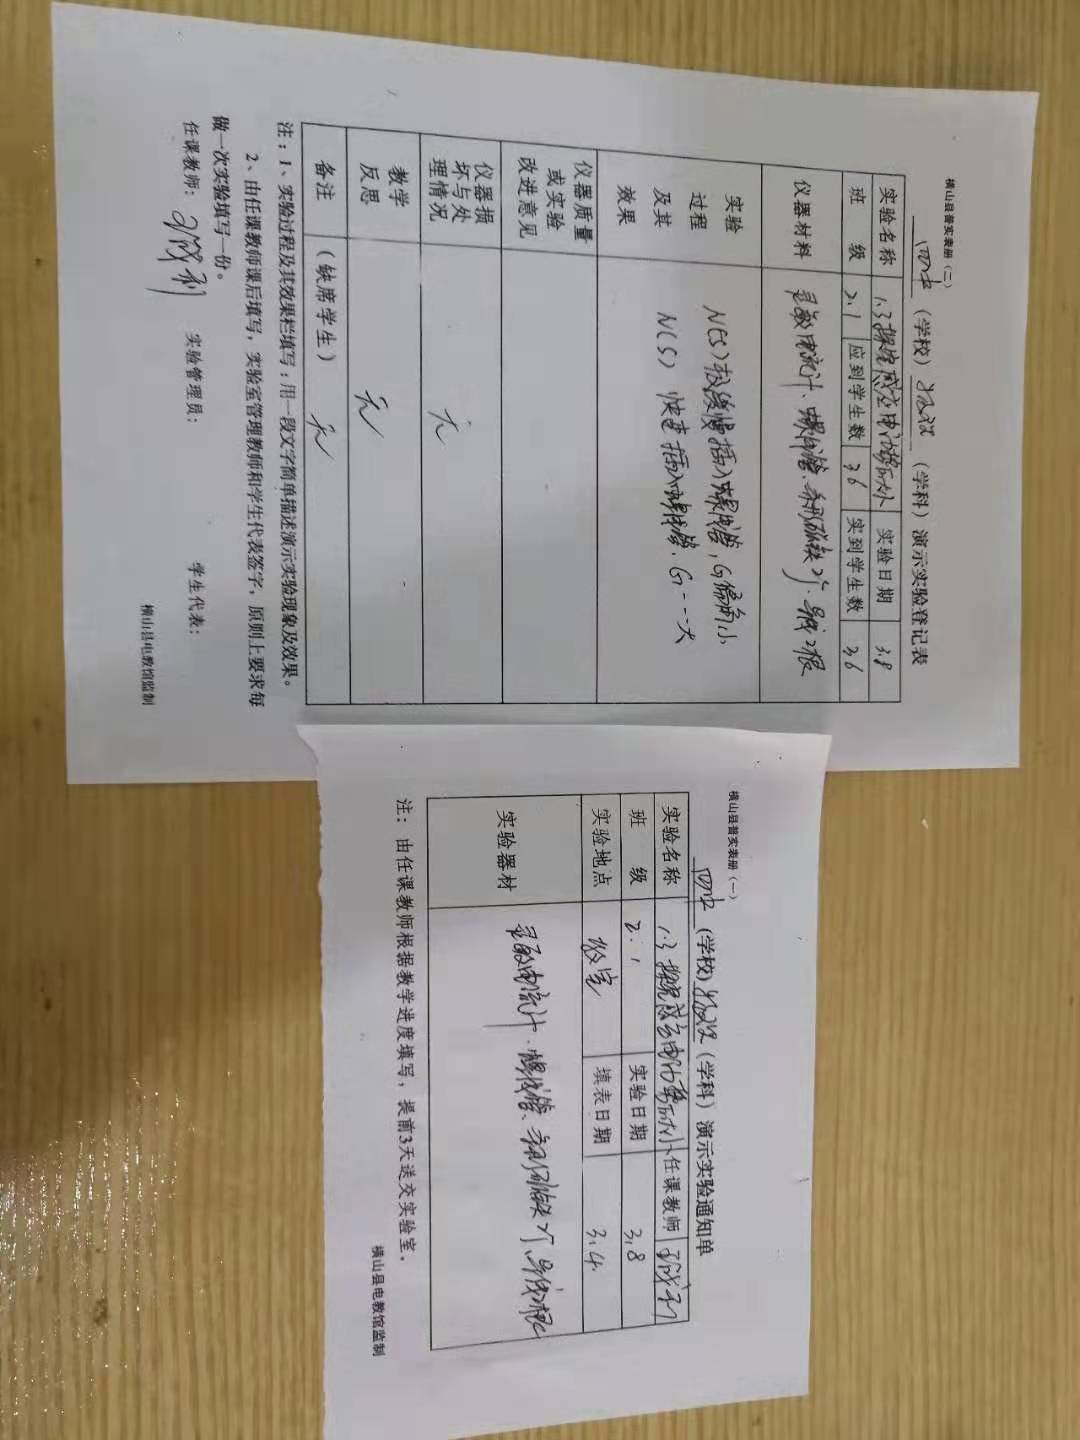 横山县普实表册（二）
四中（学校）物理（学科）演示实验登记表
实验名称 1.3探究感应电流 大小 实验日期 3.8
班 级 2.1 应到学生数 36 实到学生数 36
仪器材料 灵敏电流计、螺线管、条形磁铁2个、导线2根
实验
过程
及其
效果
N(S)极缓慢插入螺线管，G偏角小
N(S) 快速插入螺线管，G--大
仪器质量
或实验
改进意见
仪器损
坏与处
理情况
无
教学
反思
无
备注 （缺席学生） 无
注：1、实验过程及其效果栏填写：用一段文字简单描述演示实验现象及效果。
2、由任课教师课后填写，实验室管理教师和学生代表签字，原则上要求每
做一次实验填写一份。
任课教师： 实验管理员： 学生代表：
横山县电教馆监制
横山县普实表册（一）
四中（学校）物理（学科）演示实验通知单
实验名称 1.3探究感应电 大小 任课教师
班 级 2.1 实验日期 3.8
实验地点 教室 填表日期 3.4.
实验器材 灵敏电流计、螺线管、条形磁铁2个、导线2根
注：由任课教师根据教学进度填写，提前3天送交实验室。
横山县电教馆监制